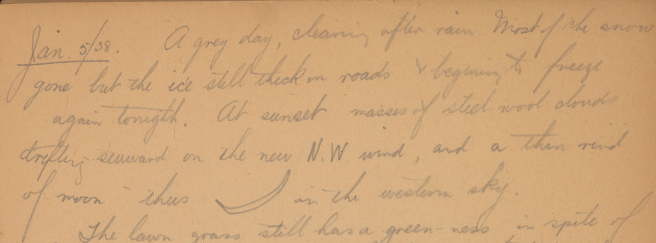 Jan. 5/38. A grey day, clearing after rain Most of the snow
gone but the ice still thick on roads & begining to freeze
again tonight. At sunset masses of steel wool clouds
drifting seaward on the new N.W wind, and a thin rind
of moon - thus in the western sky.
The lawn grass still has a green-ness in spite of